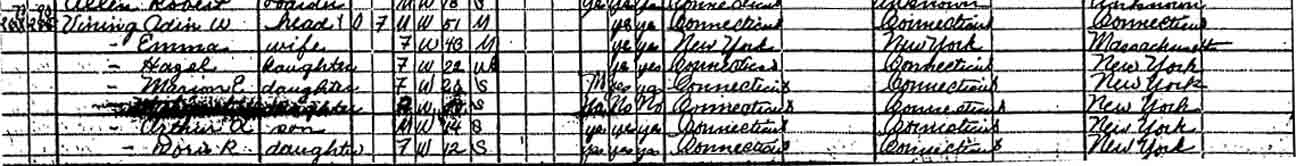 Allen Robert M W 18 S yes yes yes Connecticut Unknown Unknown
Vining Odin W head 1 O 7 M W 51 M yes yes Connecticut Connecticut Connecticut
- Emma wife F W 43 M yes yes New York New York Massachusetts
- Hazel daughter F W 22 yes yes Connecticut Connecticut New York
- Marion E daughter F W S yes yes Connecticut Connecticut New York
daughter W S No No No Connecticut Connecticut New York
- Arthur A son M W 14 S yes yes yes Connecticut Connecticut New York
- Doris R daughter F W 12 S yes yes yes Connecticut Connecticut New York